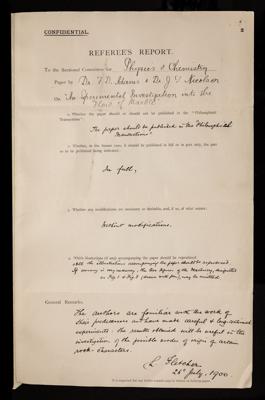 CONFIDENTIAL.
2
REFEREE'S REPORT.
To the Sectional Committee for Physics & Chemistry
Paper by Dr. F. D. Adams & Dr. J. T. Nicolson
on "An Experimental Investigation into the
Flow of Marble"
1. Whether the paper should or should not be published in the "Philosophical
Transactions":
The paper should be published in the Philosophical
Transactions.
2. Whether, in the former case, it should be published in full or in part only, the part
or parts to be published being indicated:
In full,
3. Whether any modifications are necessary or desirable, and, if so, of what nature:
Without modifications.
4. Which illustrations (if any) accompanying the paper should be reproduced:
All the illustrations accompanying the paper should be reproduced.
If economy is necessary, the two figures of the Machinery, depicted
as Fig. 1 & Fig. 2 may be omitted
General Remarks.
The authors are familiar with the work of
their predecessors and have made careful & long-continued
experiments: the results obtained will be useful in the
investigation of the possible modes of origin of certain
rock-characters.
L. Fletcher
26 July, 1900.